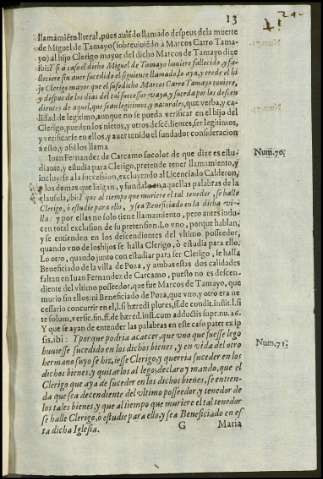 13
llamamiẽto literal, pues auiẽdo llamado despues de la muerte
de Miguel de Tamayo (sobreuiuiẽdo à Marcos Carro Tama-
yo) al hijo Clerigo mayor del dicho Marcos de Tamayo dize
ibi: Y si à caso el dicho Miguel de Tamayo huuiere fallecido, y fa-
lleciere sin auer sucedido el siguiente llamado, lo aya, y erede el hi
jo Clerigo mayor que el susodicho Marcos Carro Tamayo tuuiere,
y despues de los dias del tal succession vaya, y suceda por los descen
dientes de aquel, que sean legitimos, y naturales, que verba, y ca-
lidad de legitimo, aunque no se pueda verificar en el hijo del
Clerigo, pueden los nietos, y otros descẽdientes, ser legitimos,
y verificarse en ellos, y auer tenido el fundador consideracion
a esto, y assi los llama.
Iuan Fernandez de Carcamo so color de que dize es estu-
diante, y estudia para Clerigo, pretende tener llamamiento, y
incluirse a la succession, excluyendo al Licenciado Calderon,
y los demas que litigan, y fundale en aquellas palabras de la
clausula, ibi: Que al tiempo que muriere el tal tenedor, se halle
Clerigo, ò estudie para ello, y sea Beneficiado en la dicha vi-
lla: y por ellas no solo tiene llamamiento, pero antes indu-
cen total exclusion de su pretension. Lo vno, porque hablan,
y se entienden en los descendientes del vltimo posseedor,
quando vno de los hijos se halla Clerigo, ò estudia para ello.
Lo otro, quando junto con estudiar para ser Clerigo, le halla
Beneficiado de la villa de Poza, y ambas estas dos calidades
faltan en Iuan Fernandez de Carcamo, puesto no es descen-
diente del vltimo posseedor, que fue Marcos de Tamayo, que
murio sin ellos: ni Beneficiado de Poza, que vno, y otro era ne
cessario concurrir en el,
Y que se ayan de entender las palabras en este caso
ibi: Y porque podria acaecer, que vno que fuesse lego
huuiesse sucedido en los dichos bienes, y en vida del otro
hermano suyo se hiziesse Clerigo, y querria suceder en los
dichos bienes, y quitarlos al lego; declaro, y mando, que el
Clerigo que aya de suceder en los dichos bienes, se entien-
da que sea decendiente del vltimo posseedor, y tenedor de
los tales bienes, y que al tiempo que muriere el tal tenedor
se halle Clerigo, ò estudie para ello, y sea Beneficiado en es
ta dicha Iglesia.
G Maria
Num. 70.
Num. 71.